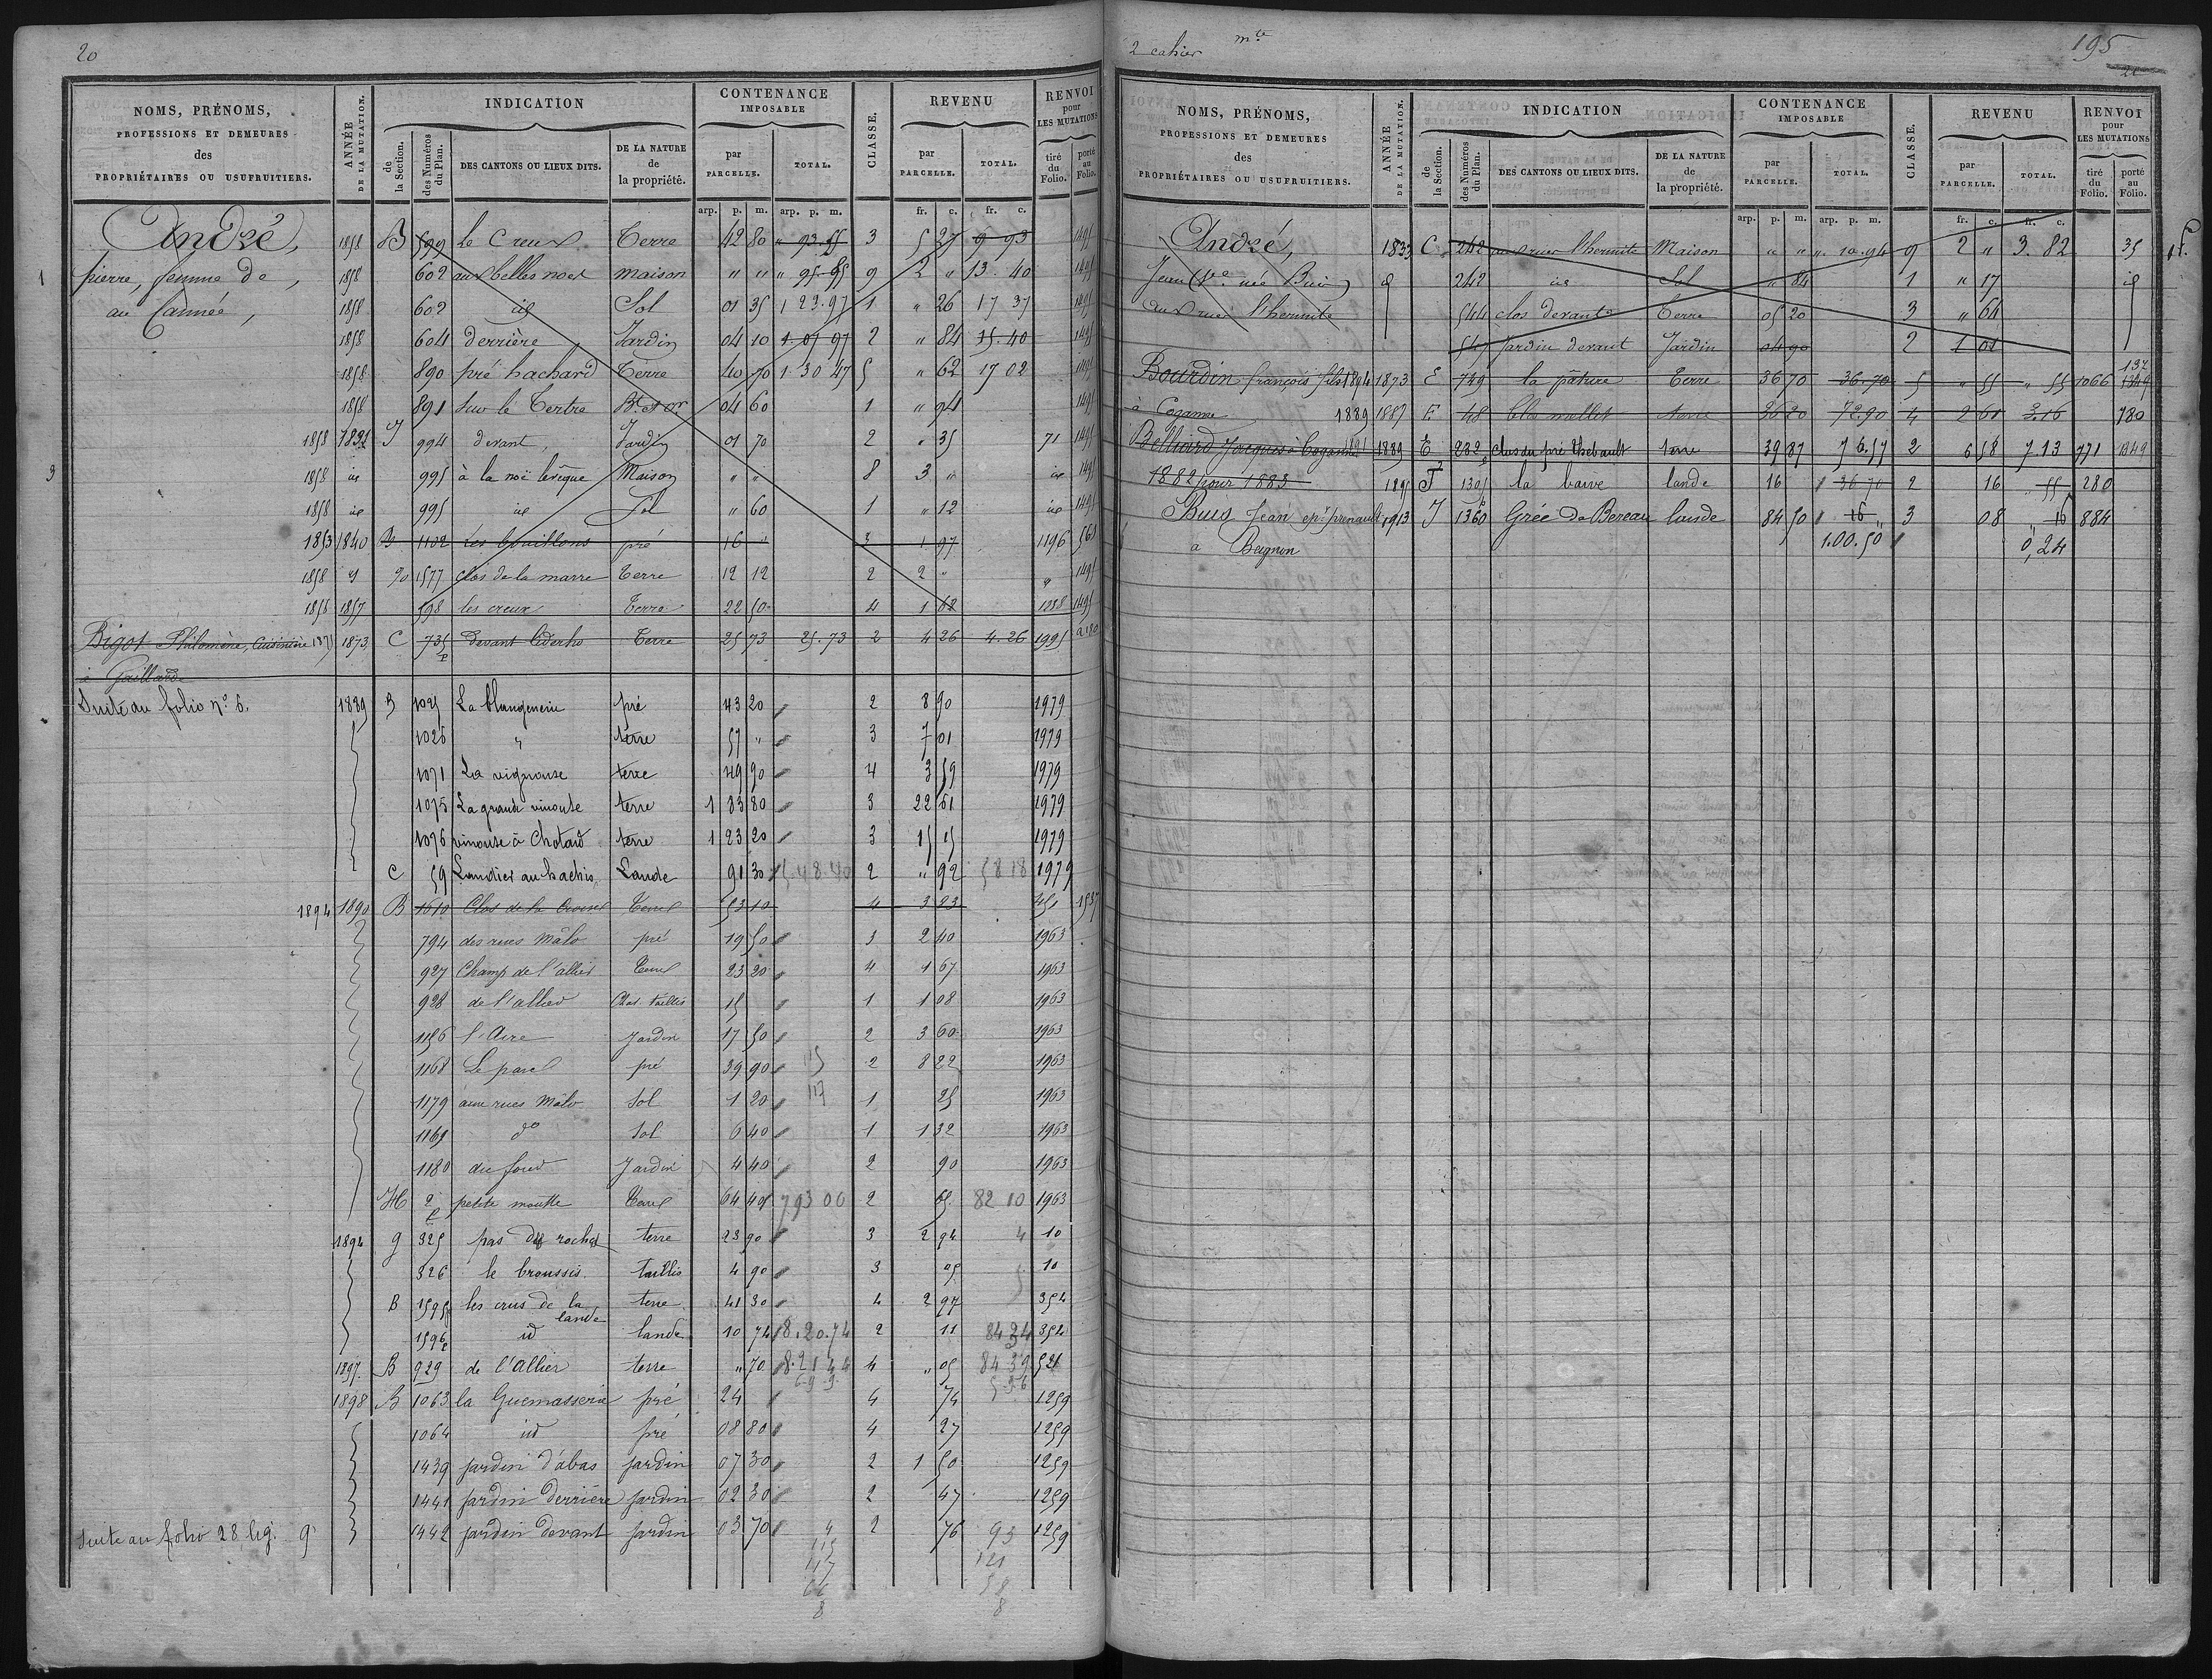 20
NOMS, PRÉNOMS, PROFESSIONS ET DEMEURES des PROPRIÉTAIRES OU USUFRUITIERS.
ANNÉE DE LA MUTATION.
INDICATION
de la Section.
des Numéros du Plan.
DES CANTONS OU LIEUX DITS.
DE LA NATURE de la propriété.
CONTENANCE IMPOSABLE
par PARCELLE.
TOTAL.
CLASSE.
REVENU
par PARCELLE.
TOTAL.
RENVOI pour LES MUTATIONS
tiré du Folio.
porté au Folio.
arp. p. m. arp. p. m. fr. c. fr. c.
André, 1858 B 599 le Creux Terre 42 80 " 93.55 3 5 27 9 93 1495
1 pierre, femme de, 1858 602 aux belles noes maison " " " 95.55 9 2 " 13.40 1495
au Cannée, 1858 602 id Sol 01 35 1 23.97 1 " 26 17 37 1495
1858 604 derrière Jardin 04 10 1.01 97 2 " 84 15.40 1495
1858 890 pré hachard Terre 40 70 1 30 47 5 " 62 17 02 1495
1858 891 sur le Tertre 04 60 1 " 94 1495
1858 1832 J 994 devant, Jardin 01 70 2 " 35 71 1495
3 1858 id 995 à la noë levêque Maison " " 8 3 " id 1495
1858 id 995 id Sol " 60 1 " 12 id 1495
1853 1840 B 1102 Les bouillons pré 16 " 3 1.97 1196 561
1858 1577 clos de la marre Terre 12 12 2 2 " 1495
1858 1857 598 les creux Terre 22 50 4 1 62 1258 1495
Bigot Philomène, Cuisinière 1875 1873 C 735 p Devant Éderho Terre 25 73 25.73 2 4 26 4.26 1995 2180
à Gaillarde
Suite au folio n° 6. 1889 B 1025 La blangenerie pré 43 20 2 8 90 1979
1026 " terre 57 " 3 7 01 1979
1071 La vignouse terre 49 90 4 3 59 1979
1075 La grande vinouse terre 1 83 80 3 22 61 1979
1076 vinouse à Chotard terre 1 23 20 3 15 15 1979
C 59 Landier au hachis Lande 91 30 5.48.40 2 " 92 58 18 1979
1894 1890 B 1610 Clos de la Terre 53 10 4 3 23 451 1537
794 des rues Mâlo pré 19 50 3 2 40 1963
927 Champ de l'allier Terre 23 20 4 1 67 1963
928 de l'allier Chat. taillis 15 1 1 08 1963
1156 l'Aire Jardin 17 50 2 3 60 1963
1168 Le parc pré 39 90 15 2 8 22 1963
1179 aux rues Mâlo Sol 1 20 117 1 25 1963
1169 do Sol 6 40 1 1 32 1963
1180 du four Jardin 4 40 2 90 1963
H 2 p petite moutte Terre 64 40 7 93 00 2 65 82 10 1963
1894 g 325 pas du rocher terre 23 90 3 2 94 4 10
326 le broussis taillis 4 90 3 05 5 10
B 1595 p les crus de la lande terre 41 30 4 2 97 354
1596 p id lande 10 74 8.20.74 2 11 84 34 354
1897 B 929 de l'Allier terre " 70 8.21 44 4 " 05 84 39 521
1898 B 1063 la Guemasserie pré 24 4 74 1259
1064 id pré 08 80 4 27 1259
1439 jardin d'abas jardin 07 30 2 1 50 1259
1441 jardin derrière jardin 02 30 2 47 1259
Suite au folio 28 lig. 9 1442 jardin devant jardin 03 70 2 76 93 1259
115 121
117 58
66 8
8
2 cahier mte 195
20
NOMS, PRÉNOMS, PROFESSIONS ET DEMEURES des PROPRIÉTAIRES OU USUFRUITIERS.
ANNÉE DE LA MUTATION.
INDICATION
de la Section.
des Numéros du Plan.
DES CANTONS OU LIEUX DITS.
DE LA NATURE de la propriété.
CONTENANCE IMPOSABLE
par PARCELLE.
TOTAL.
CLASSE.
REVENU
par PARCELLE.
TOTAL.
RENVOI pour LES MUTATIONS
tiré du Folio.
porté au Folio.
arp. p. m. arp. p. m. fr. c. fr. c.
André, 1833 C 242 aux rues l'hermite Maison " " ". 10.94 9 2 " 3.82 35
Jean Ve née 242 id Sol " 84 1 " 17 id
aux rues l'hermite 544 clos devant Terre 05 20 3 " 64
547 Jardin devant Jardin 04 90 2 1 01
Bourdin françois fils 1894 1873 E 749 la pâture Terre 36 70 36.70 5 " 55 " 55 1066 137 1349
à Coganne 1889 1887 E 48 Clos mollet terre 36 20 72.90 4 2 61 3.16 780
Belliard Jacques à Coganne 1891 1889 E 232 p clos du pré thebault terre 39 87 76.57 2 6 58 7.13 771 1349
1882 pour 1883 1895 J 1305 la barre lande 16 36 70 2 16 " 55 280
Buis Jean 1913 J 1360 Grée de Bereau lande 84 50 16 " 3 08 " 16 884
à Beignon 1.00.50 0,24